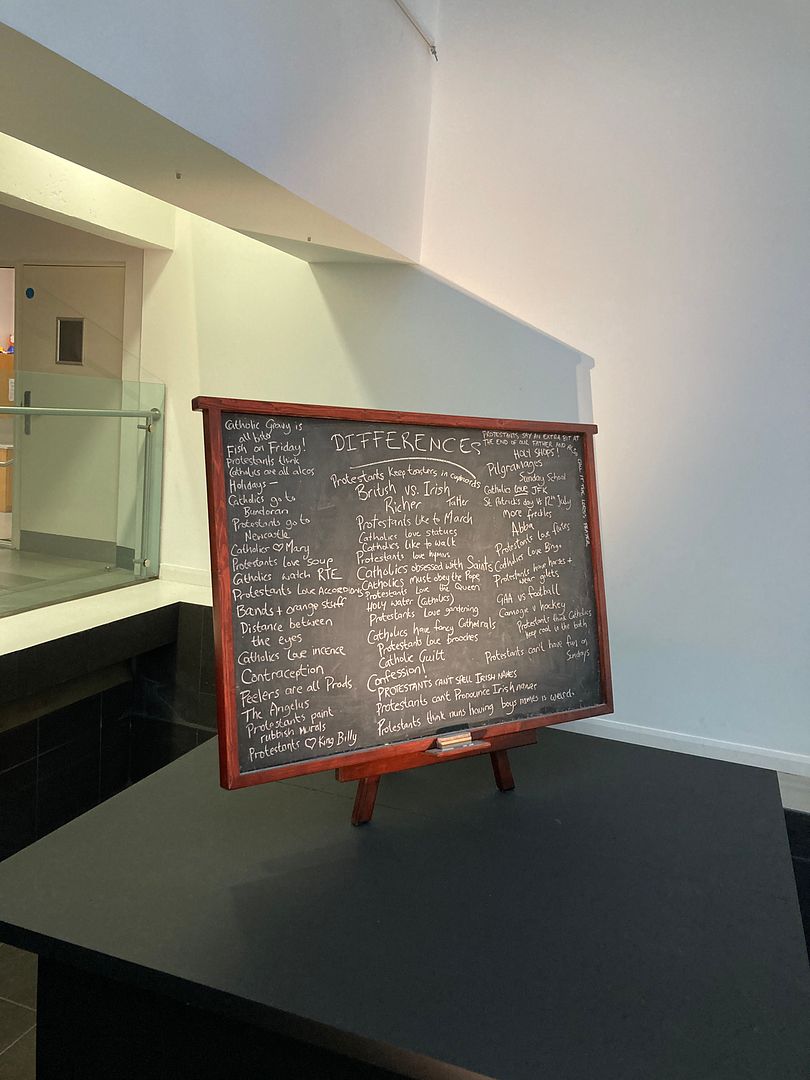 DIFFERENCES
Catholic Gravy is
all bisto
Fish on Friday!
Protestants think
Catholics are all alcos
Holidays –
Catholics go to
Bundoran
Protestants go to
Newcastle
Catholics ♡ Mary
Protestants love soup
Catholics watch RTE
Protestants Love Accordions
Bands + orange stuff
Distance between
the eyes
Catholics Love incence
Contraception
Peelers are all Prods
The Angelus
Protestants paint
rubbish murals
Protestants ♡ King Billy
Protestants keep toasters in cupboards
British vs. Irish
Richer
Taller
Protestants like to March
Catholics love statues
Catholics like to walk
Protestants love hymns
Catholics obsessed with Saints
Catholics must obey the Pope
Protestants Love the Queen
Holy water (Catholics)
Protestants Love gardening
Catholics have fancy Cathedrals
Protestants love brooches
Catholic Guilt
Confession!
PROTESTANTS CAN'T SPELL IRISH NAMES
Protestants can't Pronounce Irish names
Protestants think nuns having boys names is weird.
PROTESTANTS SAY AN EXTRA BIT AT
THE END OF OUR FATHER AND ALSO
CALL IT THE LORDS PRAYER
HOLY SHOPS!
Pilgramages
Sunday School
Catholics Love JFK
St. Patrick's day vs 12th July
More freckles
Abba
Protestants Love
Catholics Love Bingo
Protestants have horses +
wear gilets
GAA vs football
Camogie v hockey
Protestants think Catholics
keep coal in the bath
Protestants can't have fun on
Sundays